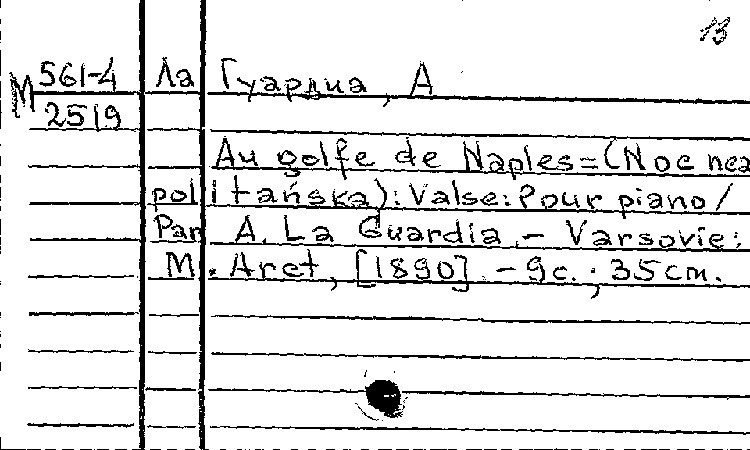 13
М 561-4 Ла Гуардиа, А
2519
Au golfe de Naples=(Noc nea
politańska): Valse: Pour piano/
Par A. La Guardia.- Varsovie:
M. Arct, [1890]. - 9c.; 35cm.